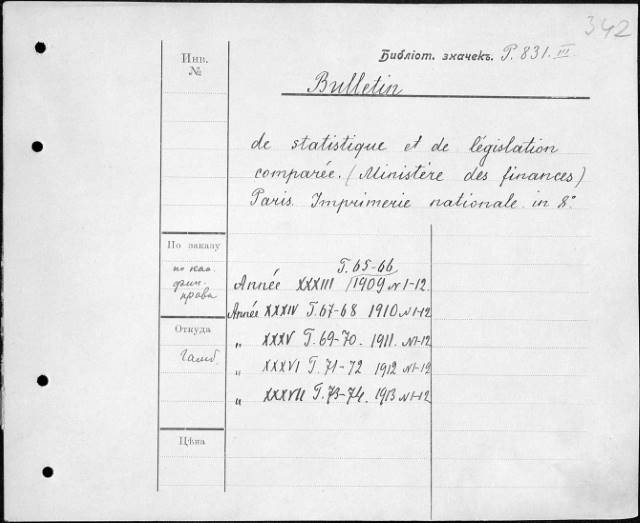 342
Инв. №
Библіот. значекъ. P. 831. III.
Bulletin
de statistique et de législation
comparée. (Ministère des finances)
Paris. Imprimerie nationale. in 8°
По заказу
по каѳ.
фин.
права
T. 65-66
Année XXXIII /1909 N 1-12
Année XXXIV T. 67-68 1910 N 1-12
Откуда
„ XXXV T. 69-70. 1911. N 1-12
„ XXXVI T. 71-72 1912 N 1-12
„ XXXVII T. 73-74. 1913 N 1-12
Цѣна